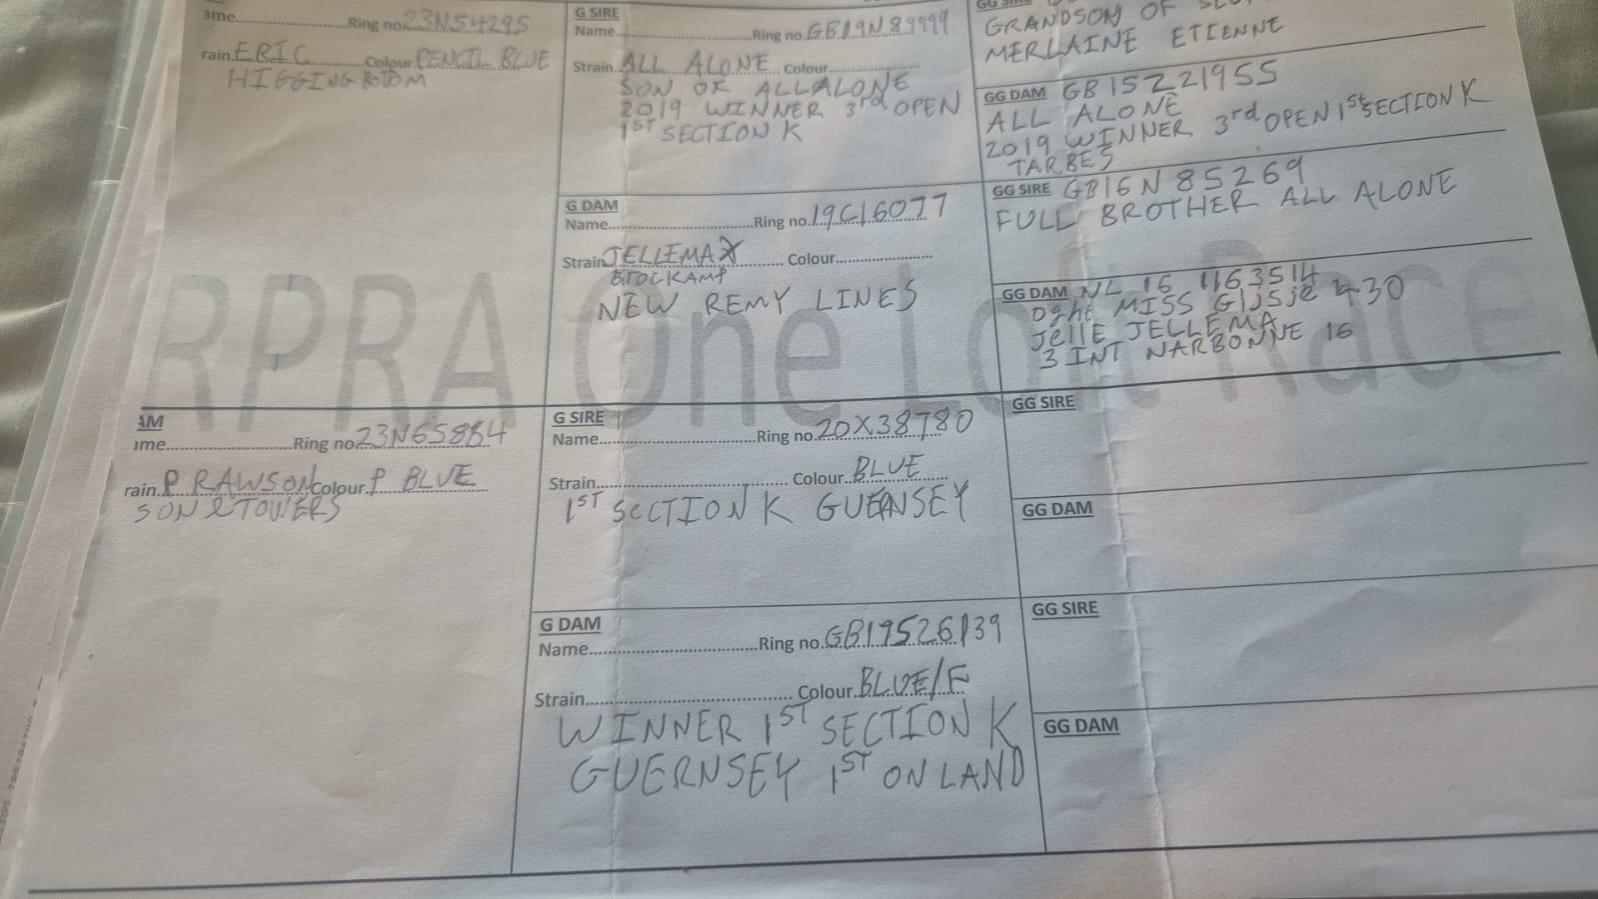 ame Ring no 23N54295
rain ERIC Colour PENCIL BLUE
HIGGINGBOTOM
G SIRE
Name Ring no GB19N89999
Strain ALL ALONE Colour
SON OF ALLALONE
2019 WINNER 3rd OPEN
1ST SECTION K
GRANDSON OF
MERLAINE ETIENNE
GG DAM GB15Z21955
ALL ALONE
2019 WINNER 3rd OPEN 1st SECTION K
TARBES
G DAM
Name Ring no 19C16077
Strain JELLEMA X Colour
BROCKAMP
NEW REMY LINES
GG SIRE GB16N85269
FULL BROTHER ALL ALONE
GG DAM NL 16 1163514
Dght MISS Gijsje 430
Jelle JELLEMA
3 INT NARBONNE 16
RPRA One Loft Race
AM
ame Ring no 23N65884
rain P RAWSON Colour P BLUE
SON & TOWERS
G SIRE
Name Ring no 20X38780
Strain Colour BLUE
1ST SECTION K GUERNSEY
GG SIRE
GG DAM
G DAM
Name Ring no GB19S26139
Strain Colour BLUE/F
WINNER 1ST SECTION K
GUERNSEY 1ST ON LAND
GG SIRE
GG DAM